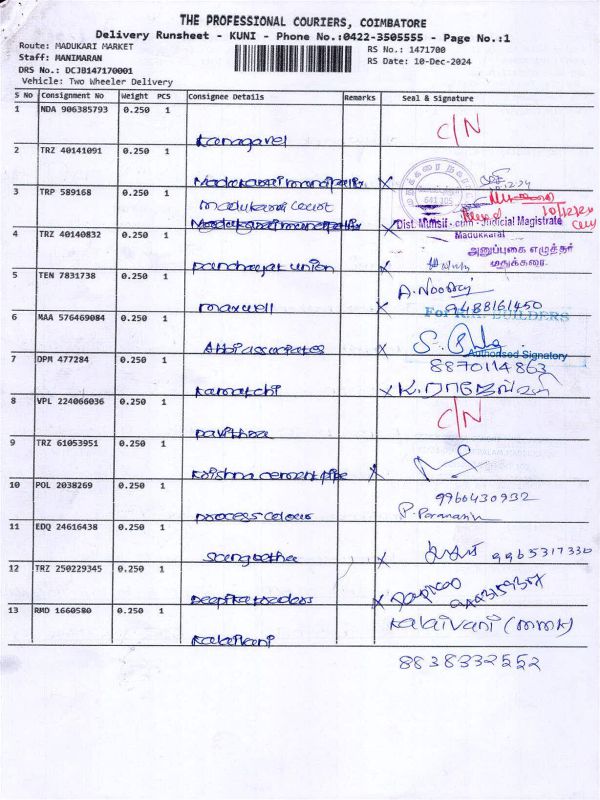 THE PROFESSIONAL COURIERS, COIMBATORE
Delivery Runsheet - KUNI - Phone No.:0422-3505555 - Page No.:1
Route: MADUKARI MARKET RS No.: 1471700
Staff: MANIMARAN RS Date: 10-Dec-2024
DRS No.: DCJB147170001
Vehicle: Two Wheeler Delivery
S No Consignment No Weight PCS Consignee Details Remarks Seal & Signature
1 NDA 906385793 0.250 1
Kanagavel C/N
2 TRZ 40141091 0.250 1
3 TRP 589168 0.250 1 madukarai court
641 105
Dist. Munsif - cum - Judicial Magistrate
Madukkarai
4 TRZ 40140832 0.250 1
அனுப்புகை எழுத்தர்
மதுக்கரை.
panchayat union
5 TEN 7831738 0.250 1
maxwell 9488161450
6 MAA 576469084 0.250 1 BUILDERS
Abbi associates Authorised Signatory
7 DPM 477284 0.250 1 8870114863
kamatchi
8 VPL 224066036 0.250 1 C/N
pavithra
9 TRZ 61053951 0.250 1
Krishna cement pipe
10 POL 2038269 0.250 1 9960430932
process colour
11 EDQ 24616438 0.250 1
Sangeetha 9965317330
12 TRZ 250229345 0.250 1
Deepika traders
13 RMD 1660580 0.250 1 Kalaivani
Kalaivani
8838332552